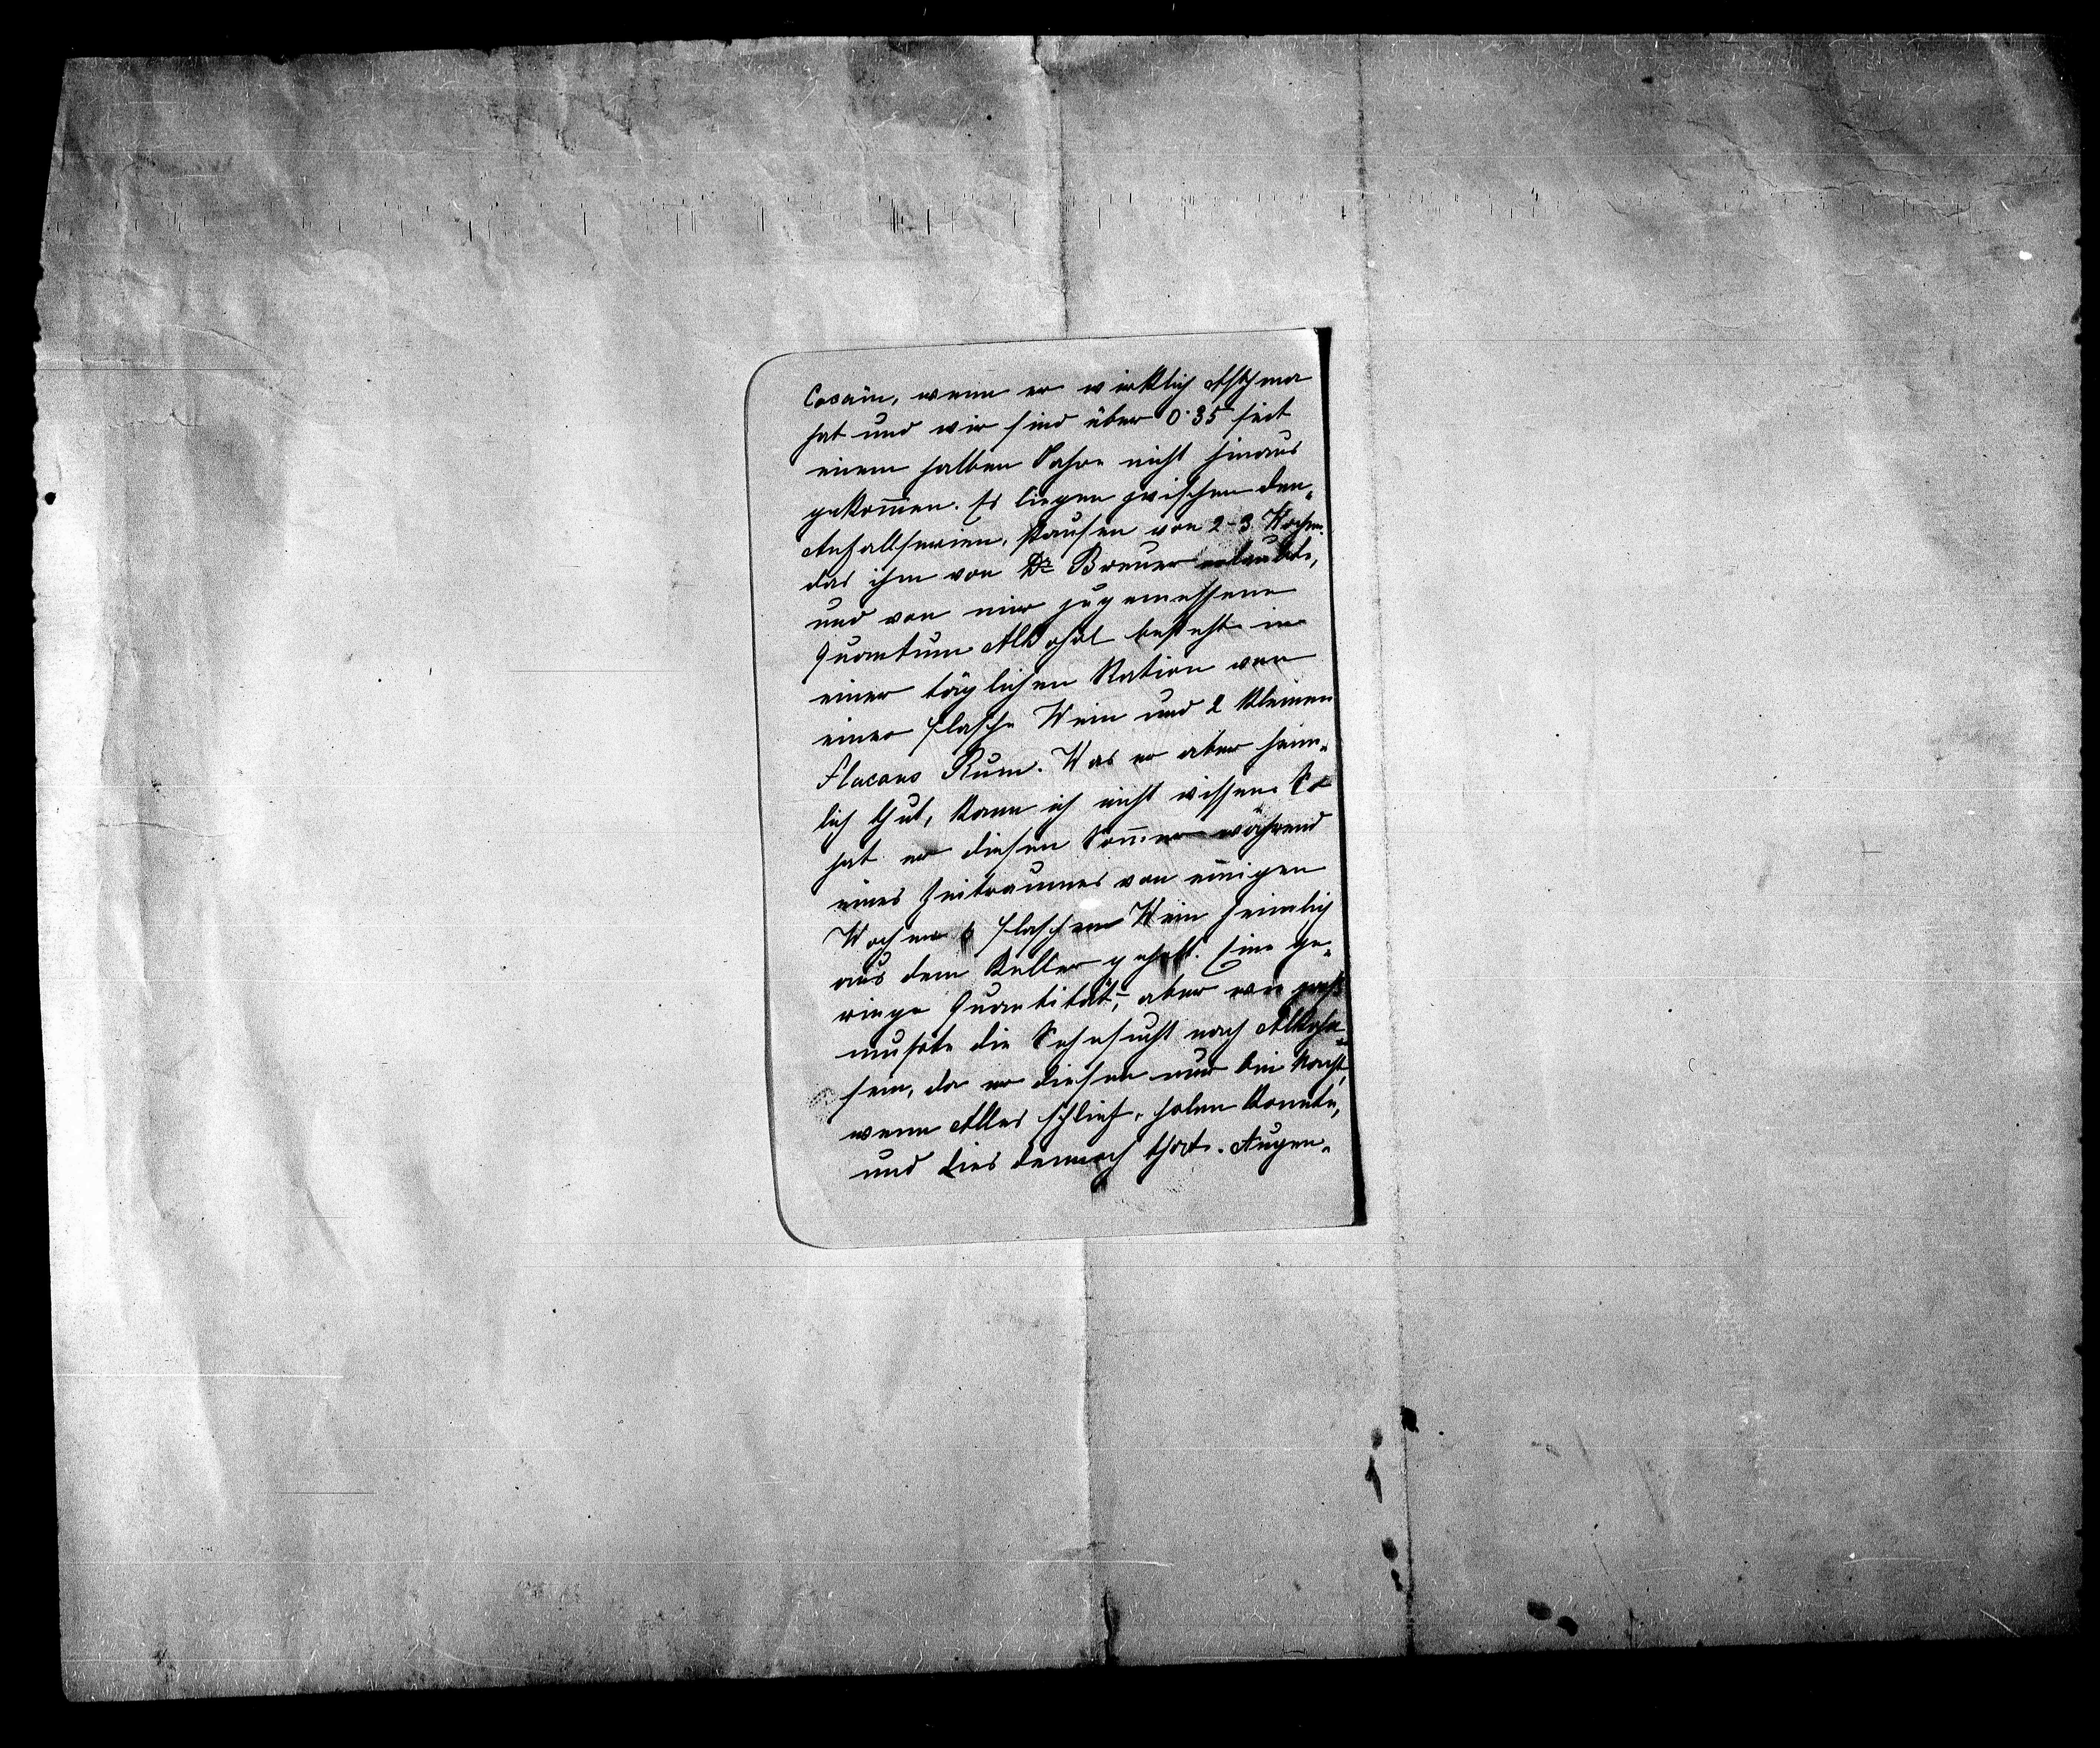 Cocain, wenn er wirklich Asthma
hat und wir sind über 0·35 seit
einem halben Jahre nicht hinaus
gekom̄en. Es liegen zwischen den
Anfallserien, Pausen von 2-3 Wochen.
das ihm von Dr Breuer erlaubte,
und von mir zugemessene
Quantum Alkohol besteht in
einer täglichen Ration von
einer Flasche Wein und 2 kleinen
Flacons Rum. Was er aber heim-
lich thut, kann ich nicht wissen. So
hat er diesen Som̄er während
eines Zeitraumes von einigen
Wochen 6 Flaschen Wein heimlich
aus dem Keller geholt. Eine ge-
ringe Quantität, aber wie groß
musste die Sehnsucht nach Alkohol
sein, da er diesen nur bei Nacht,
wenn Alles schlief, holen konnte,
und dies dennoch that. Augen-